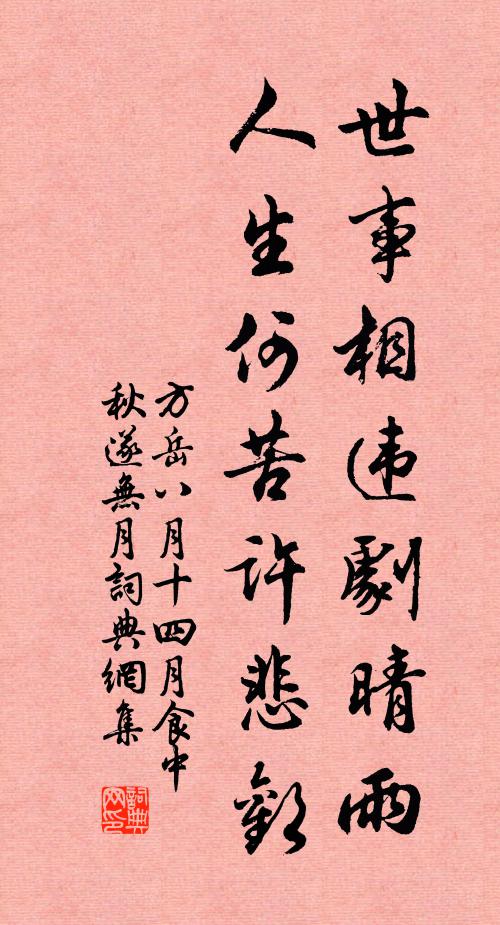 世事相违劇晴雨
人生何苦許悲歡
方岳八月十四月食中
秋遂無月詞典網集
詞典网印